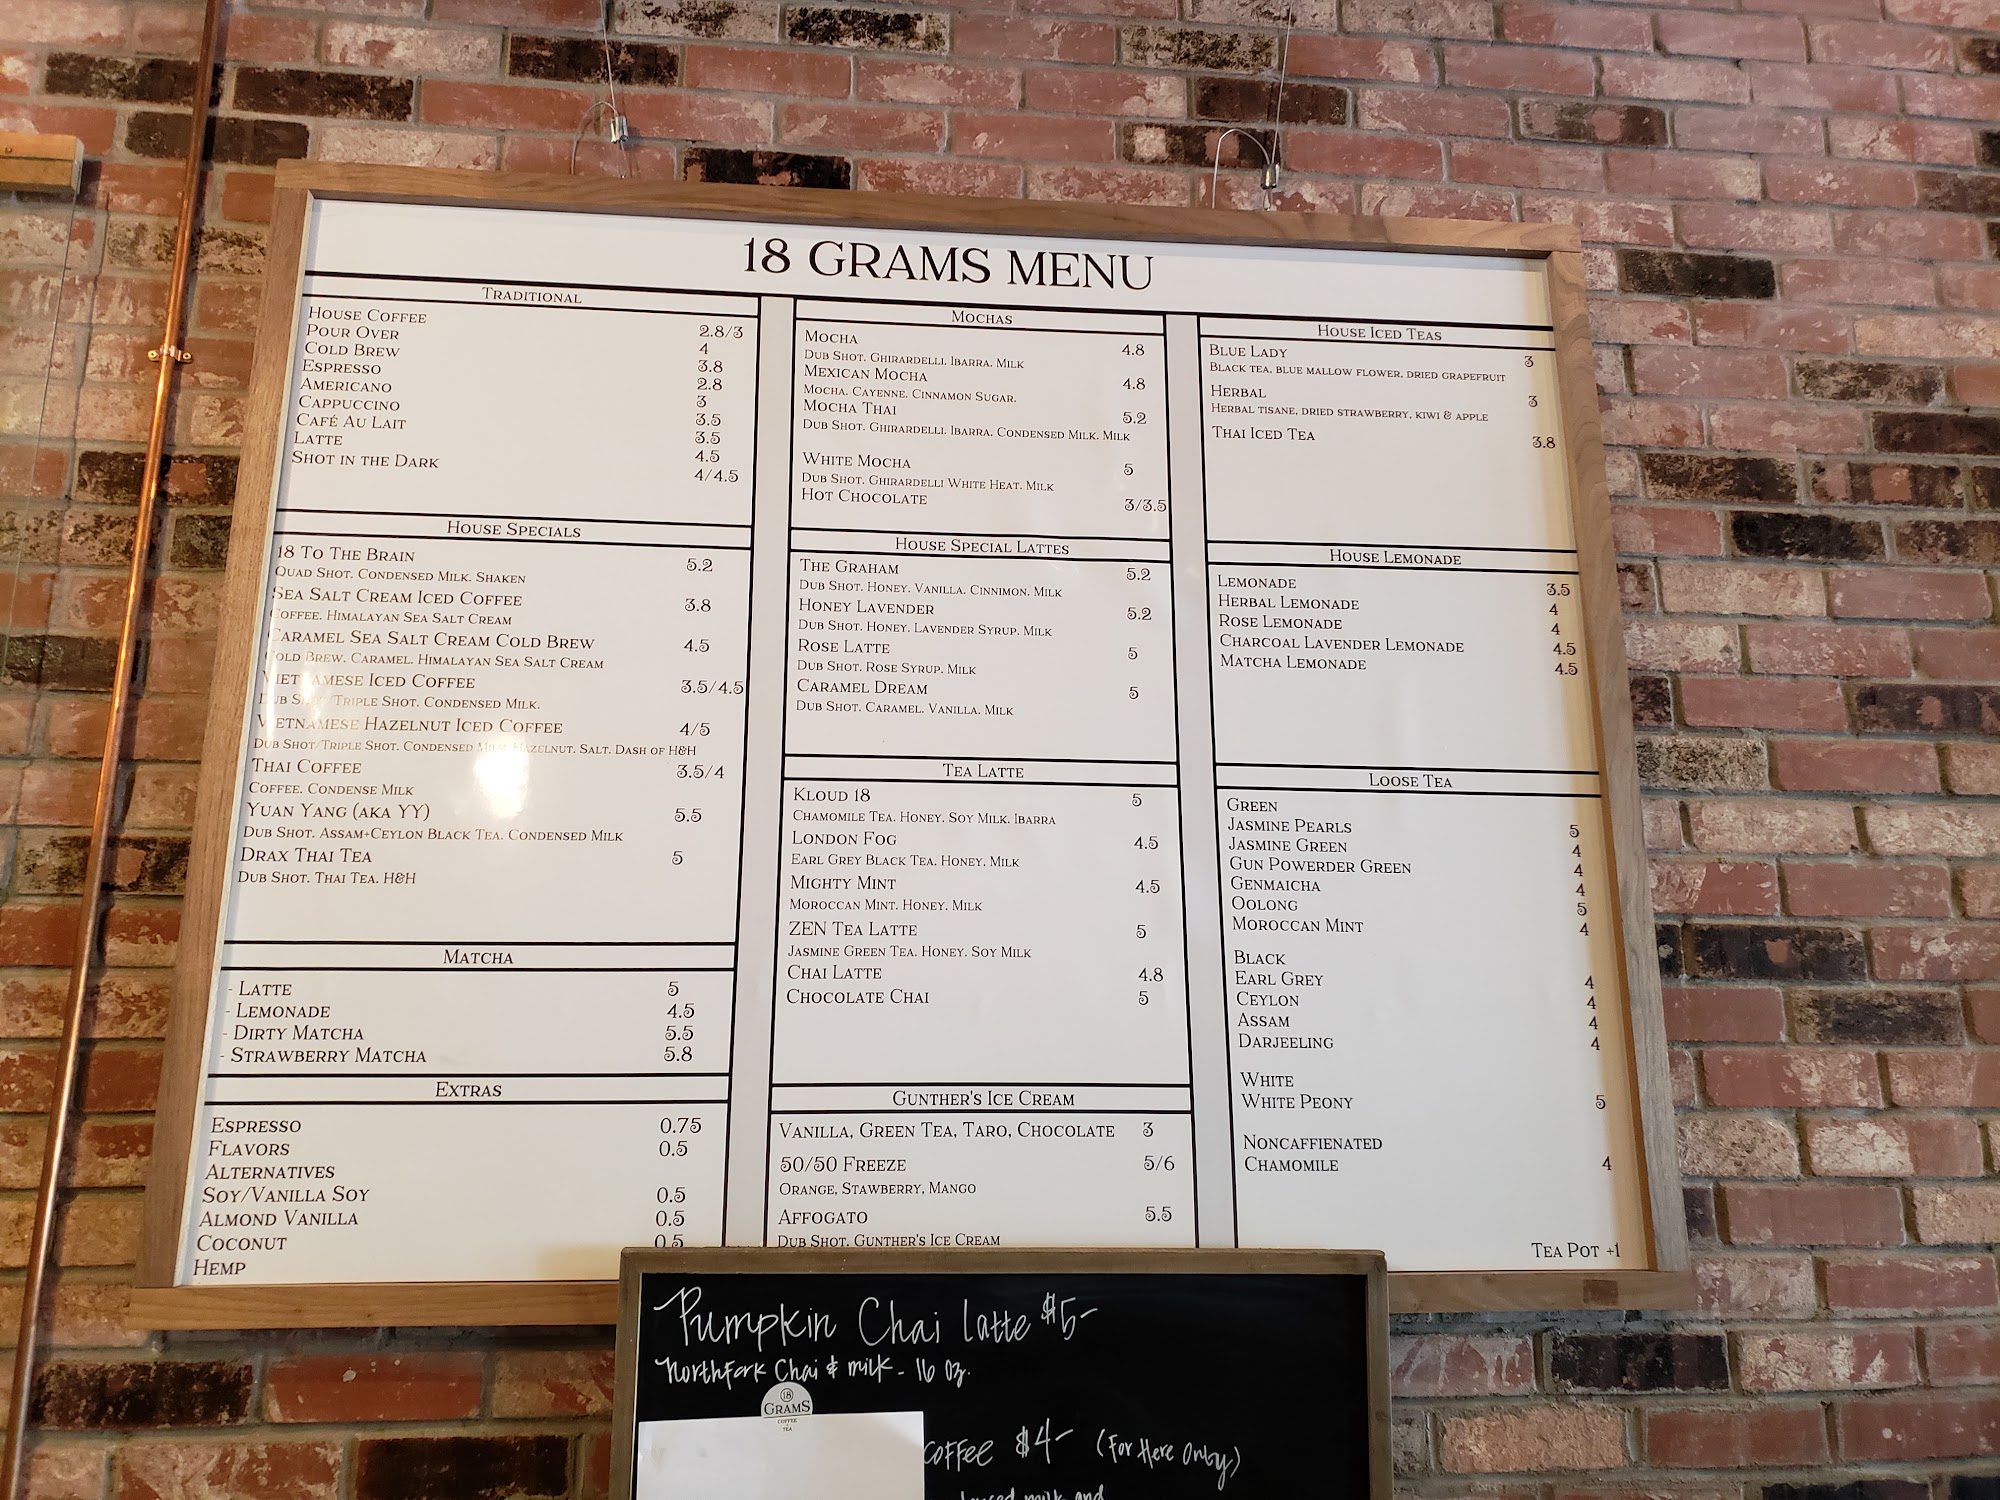 18 GRAMS MENU
TRADITIONAL
HOUSE COFFEE 2.8/3
POUR OVER 4
COLD BREW 3.8
ESPRESSO 2.8
AMERICANO 3
CAPPUCCINO 3.5
CAFÉ AU LAIT 3.5
LATTE 4.5
SHOT IN THE DARK 4/4.5
HOUSE SPECIALS
18 TO THE BRAIN 5.2
QUAD SHOT. CONDENSED MILK. SHAKEN
SEA SALT CREAM ICED COFFEE 3.8
COFFEE. HIMALAYAN SEA SALT CREAM
CARAMEL SEA SALT CREAM COLD BREW 4.5
COLD BREW. CARAMEL. HIMALAYAN SEA SALT CREAM
VIETNAMESE ICED COFFEE 3.5/4.5
DUB SHOT/TRIPLE SHOT. CONDENSED MILK.
VIETNAMESE HAZELNUT ICED COFFEE 4/5
DUB SHOT/TRIPLE SHOT. CONDENSED MILK. HAZELNUT. SALT. DASH OF H&H
THAI COFFEE 3.5/4
COFFEE. CONDENSE MILK
YUAN YANG (AKA YY) 5.5
DUB SHOT. ASSAM+CEYLON BLACK TEA. CONDENSED MILK
DRAX THAI TEA 5
DUB SHOT. THAI TEA. H&H
MATCHA
- LATTE 5
- LEMONADE 4.5
- DIRTY MATCHA 5.5
- STRAWBERRY MATCHA 5.8
EXTRAS
ESPRESSO 0.75
FLAVORS 0.5
ALTERNATIVES
SOY/VANILLA SOY 0.5
ALMOND VANILLA 0.5
COCONUT 0.5
HEMP
MOCHAS
MOCHA 4.8
DUB SHOT. GHIRARDELLI. IBARRA. MILK
MEXICAN MOCHA 4.8
MOCHA. CAYENNE. CINNAMON SUGAR.
MOCHA THAI 5.2
DUB SHOT. GHIRARDELLI. IBARRA. CONDENSED MILK. MILK
WHITE MOCHA 5
DUB SHOT. GHIRARDELLI WHITE HEAT. MILK
HOT CHOCOLATE 3/3.5
HOUSE SPECIAL LATTES
THE GRAHAM 5.2
DUB SHOT. HONEY. VANILLA. CINNIMON. MILK
HONEY LAVENDER 5.2
DUB SHOT. HONEY. LAVENDER SYRUP. MILK
ROSE LATTE 5
DUB SHOT. ROSE SYRUP. MILK
CARAMEL DREAM 5
DUB SHOT. CARAMEL. VANILLA. MILK
TEA LATTE
KLOUD 18 5
CHAMOMILE TEA. HONEY. SOY MILK. IBARRA
LONDON FOG 4.5
EARL GREY BLACK TEA. HONEY. MILK
MIGHTY MINT 4.5
MOROCCAN MINT. HONEY. MILK
ZEN TEA LATTE 5
JASMINE GREEN TEA. HONEY. SOY MILK
CHAI LATTE 4.8
CHOCOLATE CHAI 5
GUNTHER'S ICE CREAM
VANILLA, GREEN TEA, TARO, CHOCOLATE 3
50/50 FREEZE 5/6
ORANGE, STAWBERRY, MANGO
AFFOGATO 5.5
DUB SHOT. GUNTHER'S ICE CREAM
HOUSE ICED TEAS
BLUE LADY 3
BLACK TEA, BLUE MALLOW FLOWER, DRIED GRAPEFRUIT
HERBAL 3
HERBAL TISANE, DRIED STRAWBERRY, KIWI & APPLE
THAI ICED TEA 3.8
HOUSE LEMONADE
LEMONADE 3.5
HERBAL LEMONADE 4
ROSE LEMONADE 4
CHARCOAL LAVENDER LEMONADE 4.5
MATCHA LEMONADE 4.5
LOOSE TEA
GREEN
JASMINE PEARLS 5
JASMINE GREEN 4
GUN POWERDER GREEN 4
GENMAICHA 4
OOLONG 5
MOROCCAN MINT 4
BLACK
EARL GREY 4
CEYLON 4
ASSAM 4
DARJEELING 4
WHITE
WHITE PEONY 5
NONCAFFIENATED
CHAMOMILE 4
TEA POT +1
Pumpkin Chai latte $5-
Northfork Chai & milk - 16 oz.
18
GRAMS
COFFEE
TEA
COFFEE $4- (For Here Only)
milk and